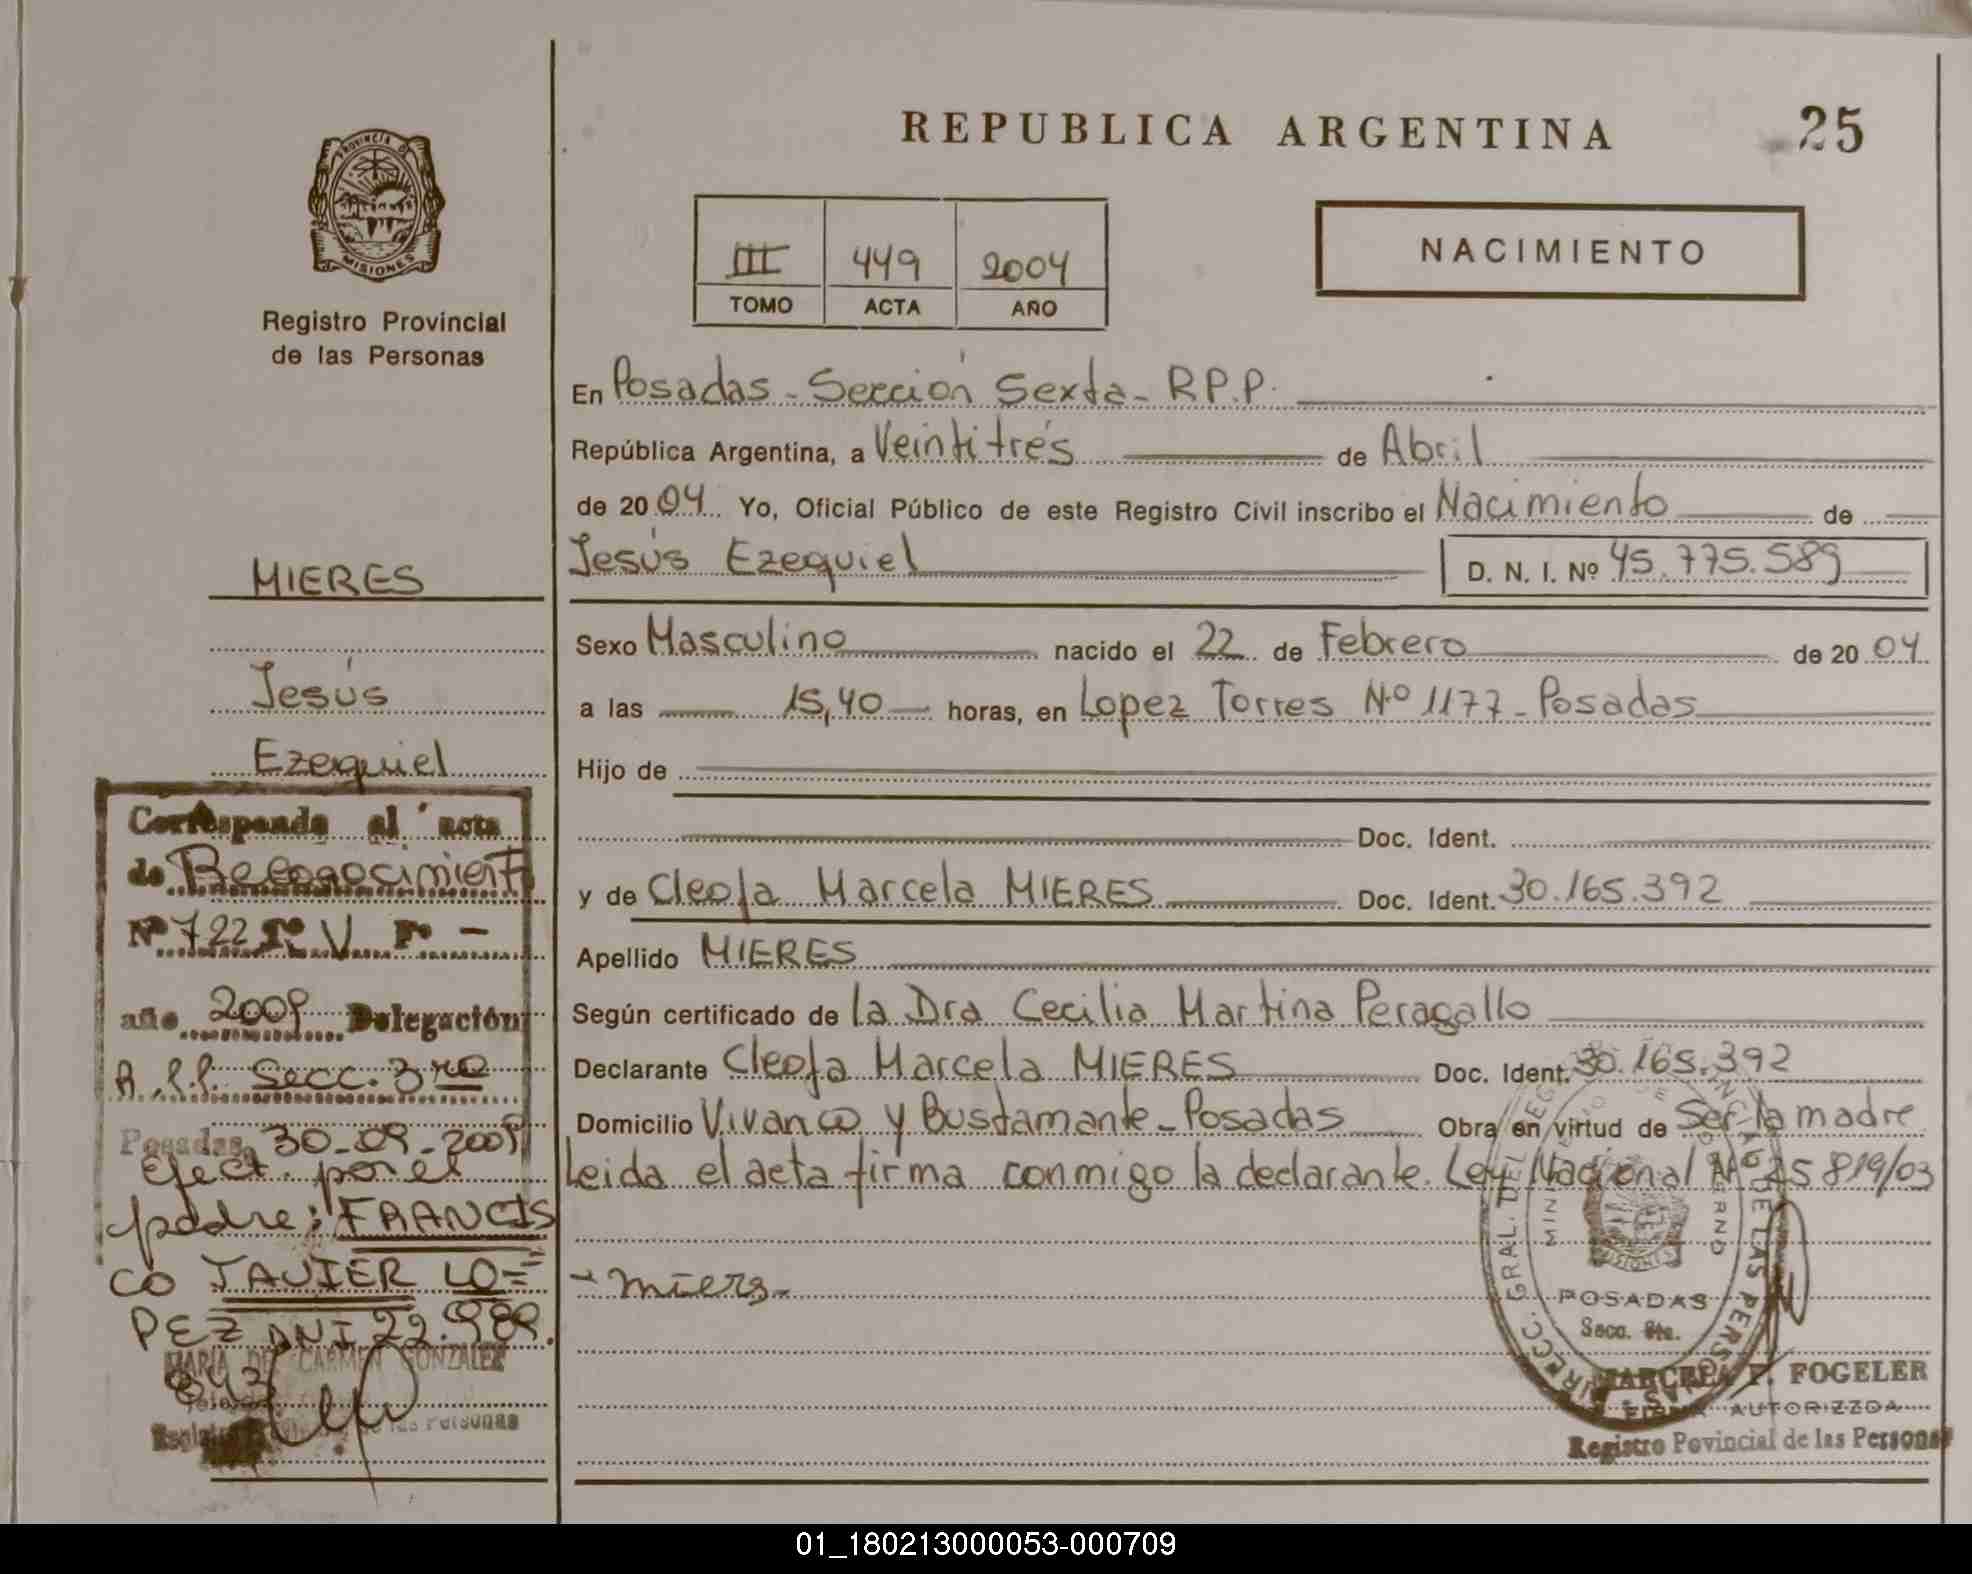 REPUBLICA ARGENTINA
25
PROVINCIA DE
MISIONES
Registro Provincial
de las Personas
III 449 2004
TOMO ACTA AÑO
NACIMIENTO
En Posadas - Sección Sexta - R.P.P.
República Argentina, a Veintitrés de Abril
de 2004 Yo, Oficial Público de este Registro Civil inscribo el Nacimiento de
Jesús Ezequiel D. N. I. Nº 45.775.589
Sexo Masculino nacido el 22 de Febrero de 2004
a las 15,40 horas, en Lopez Torres Nº 1177 - Posadas
Hijo de
Doc. Ident.
y de Cleofa Marcela MIERES Doc. Ident. 30.165.392
Apellido MIERES
Según certificado de la Dra Cecilia Martina Peragallo
Declarante Cleofa Marcela MIERES Doc. Ident. 30.165.392
Domicilio Vivanco y Bustamante - Posadas Obra en virtud de Ser la madre
Leida el acta firma conmigo la declarante. Ley Nacional Nº 25819/03
- miers -
MIERES
Jesús
Ezequiel
Corresponde al acta
de Reconocimient
Nº 722 Tº V Fº -
año 2009 Delegación
R.P.P. Secc. 3ra
Posadas, 30-09-2009
Efect. por el
padre: FRANCIS
CO JAVIER LO=
PEZ DNI 22.989.
843
MARIA DEL CARMEN GONZALEZ
de las Personas
POSADAS
Secc. 6ta.
MARCELA F. FOGELER
FIRMA AUTORIZZDA
Registro Povincial de las Personas
01_180213000053-000709